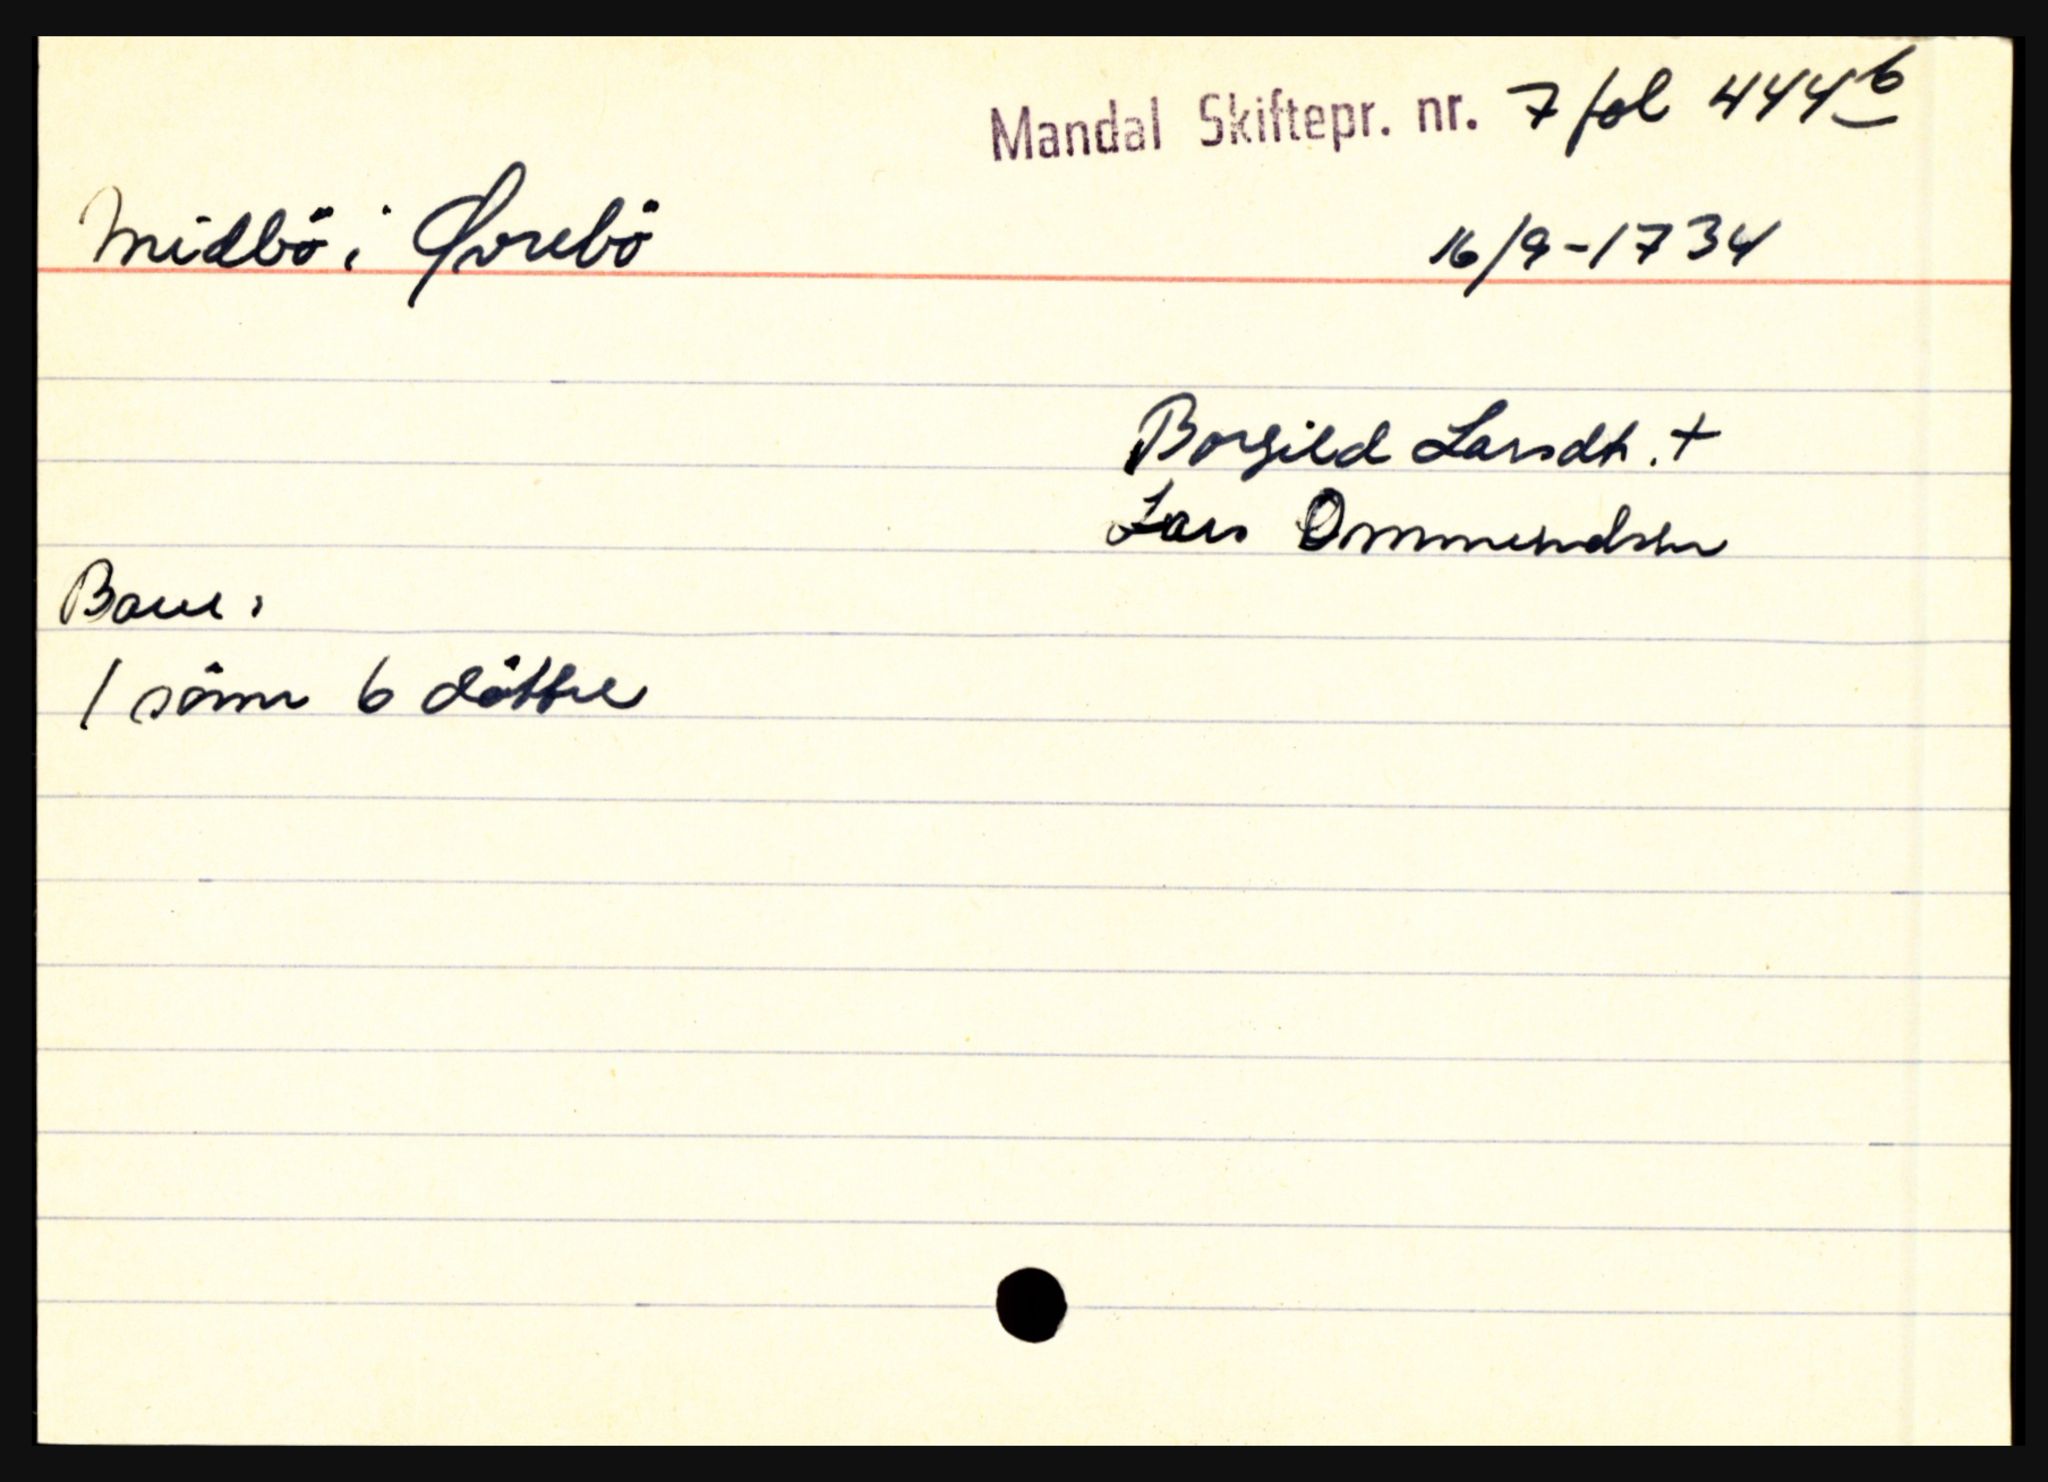 Mandal Skiftepr. nr. 7 fol 444b
Midbö i Øvrebö 16/9-1734
Borgild Larsdtr. +
Lars Ommundsen
Barn:
1 sönn 6 döttre